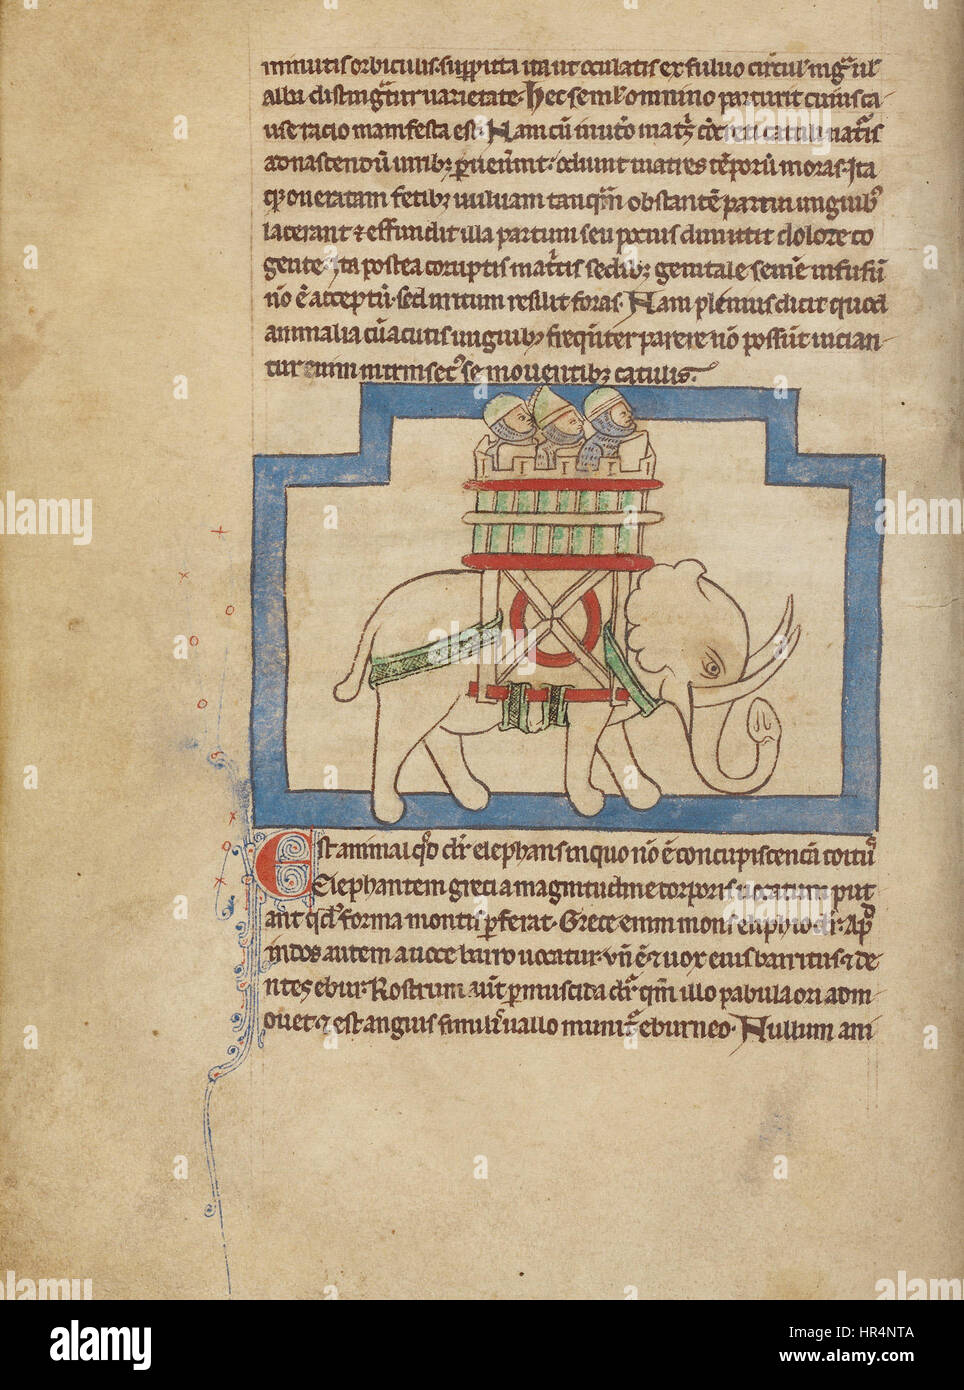 minutis orbiculis . supputa ita ut oculatis ex fuluo circul' nigͣ ul'
alba distingᷓtur uarietate . Hec semł omnino parturit cuius ca
use racio manifesta est . Nam cū catuli
ad nascendū uirib; ꝑuenerint . odiunt matres tēporū moras . Ita
oneratam fetib; uuluam tanqͣm obstantē partui unguib;
lacerant ⁊ effundit illa partum seu pocius dimittit dolore co
gente . Ita postea coruptis matͥcis sedib; genitale semē infusū
nō ē acceptū . sed irritum resilit foras . Nam plenius dicit quod
animalia cū acutis unguib; freq̄nter parere nō possūt uician-
tur enim intrinsec' se mouentib; catulis .
Est animal qd̓ dr̄ elephans in quo nō ē concupiscencia coitus
Elephantem greci a magnitudine corporis uocatum put
ant qd' forma montis p̄ferat . Grece enim mons eliphio dr̄ : Apd̓
indos autem a uoce barro uocatur . vn̄ ē ⁊ uox eius barritus ⁊ de
ntes ebur . Rostrum aūt ꝑmuscida dr̄ qm̄ illo pabula ori adm-
ouet ⁊ est angui similis uallo munit eburneo . Nullum ani
alamy
Image ID: HR4NTA
www.alamy.com